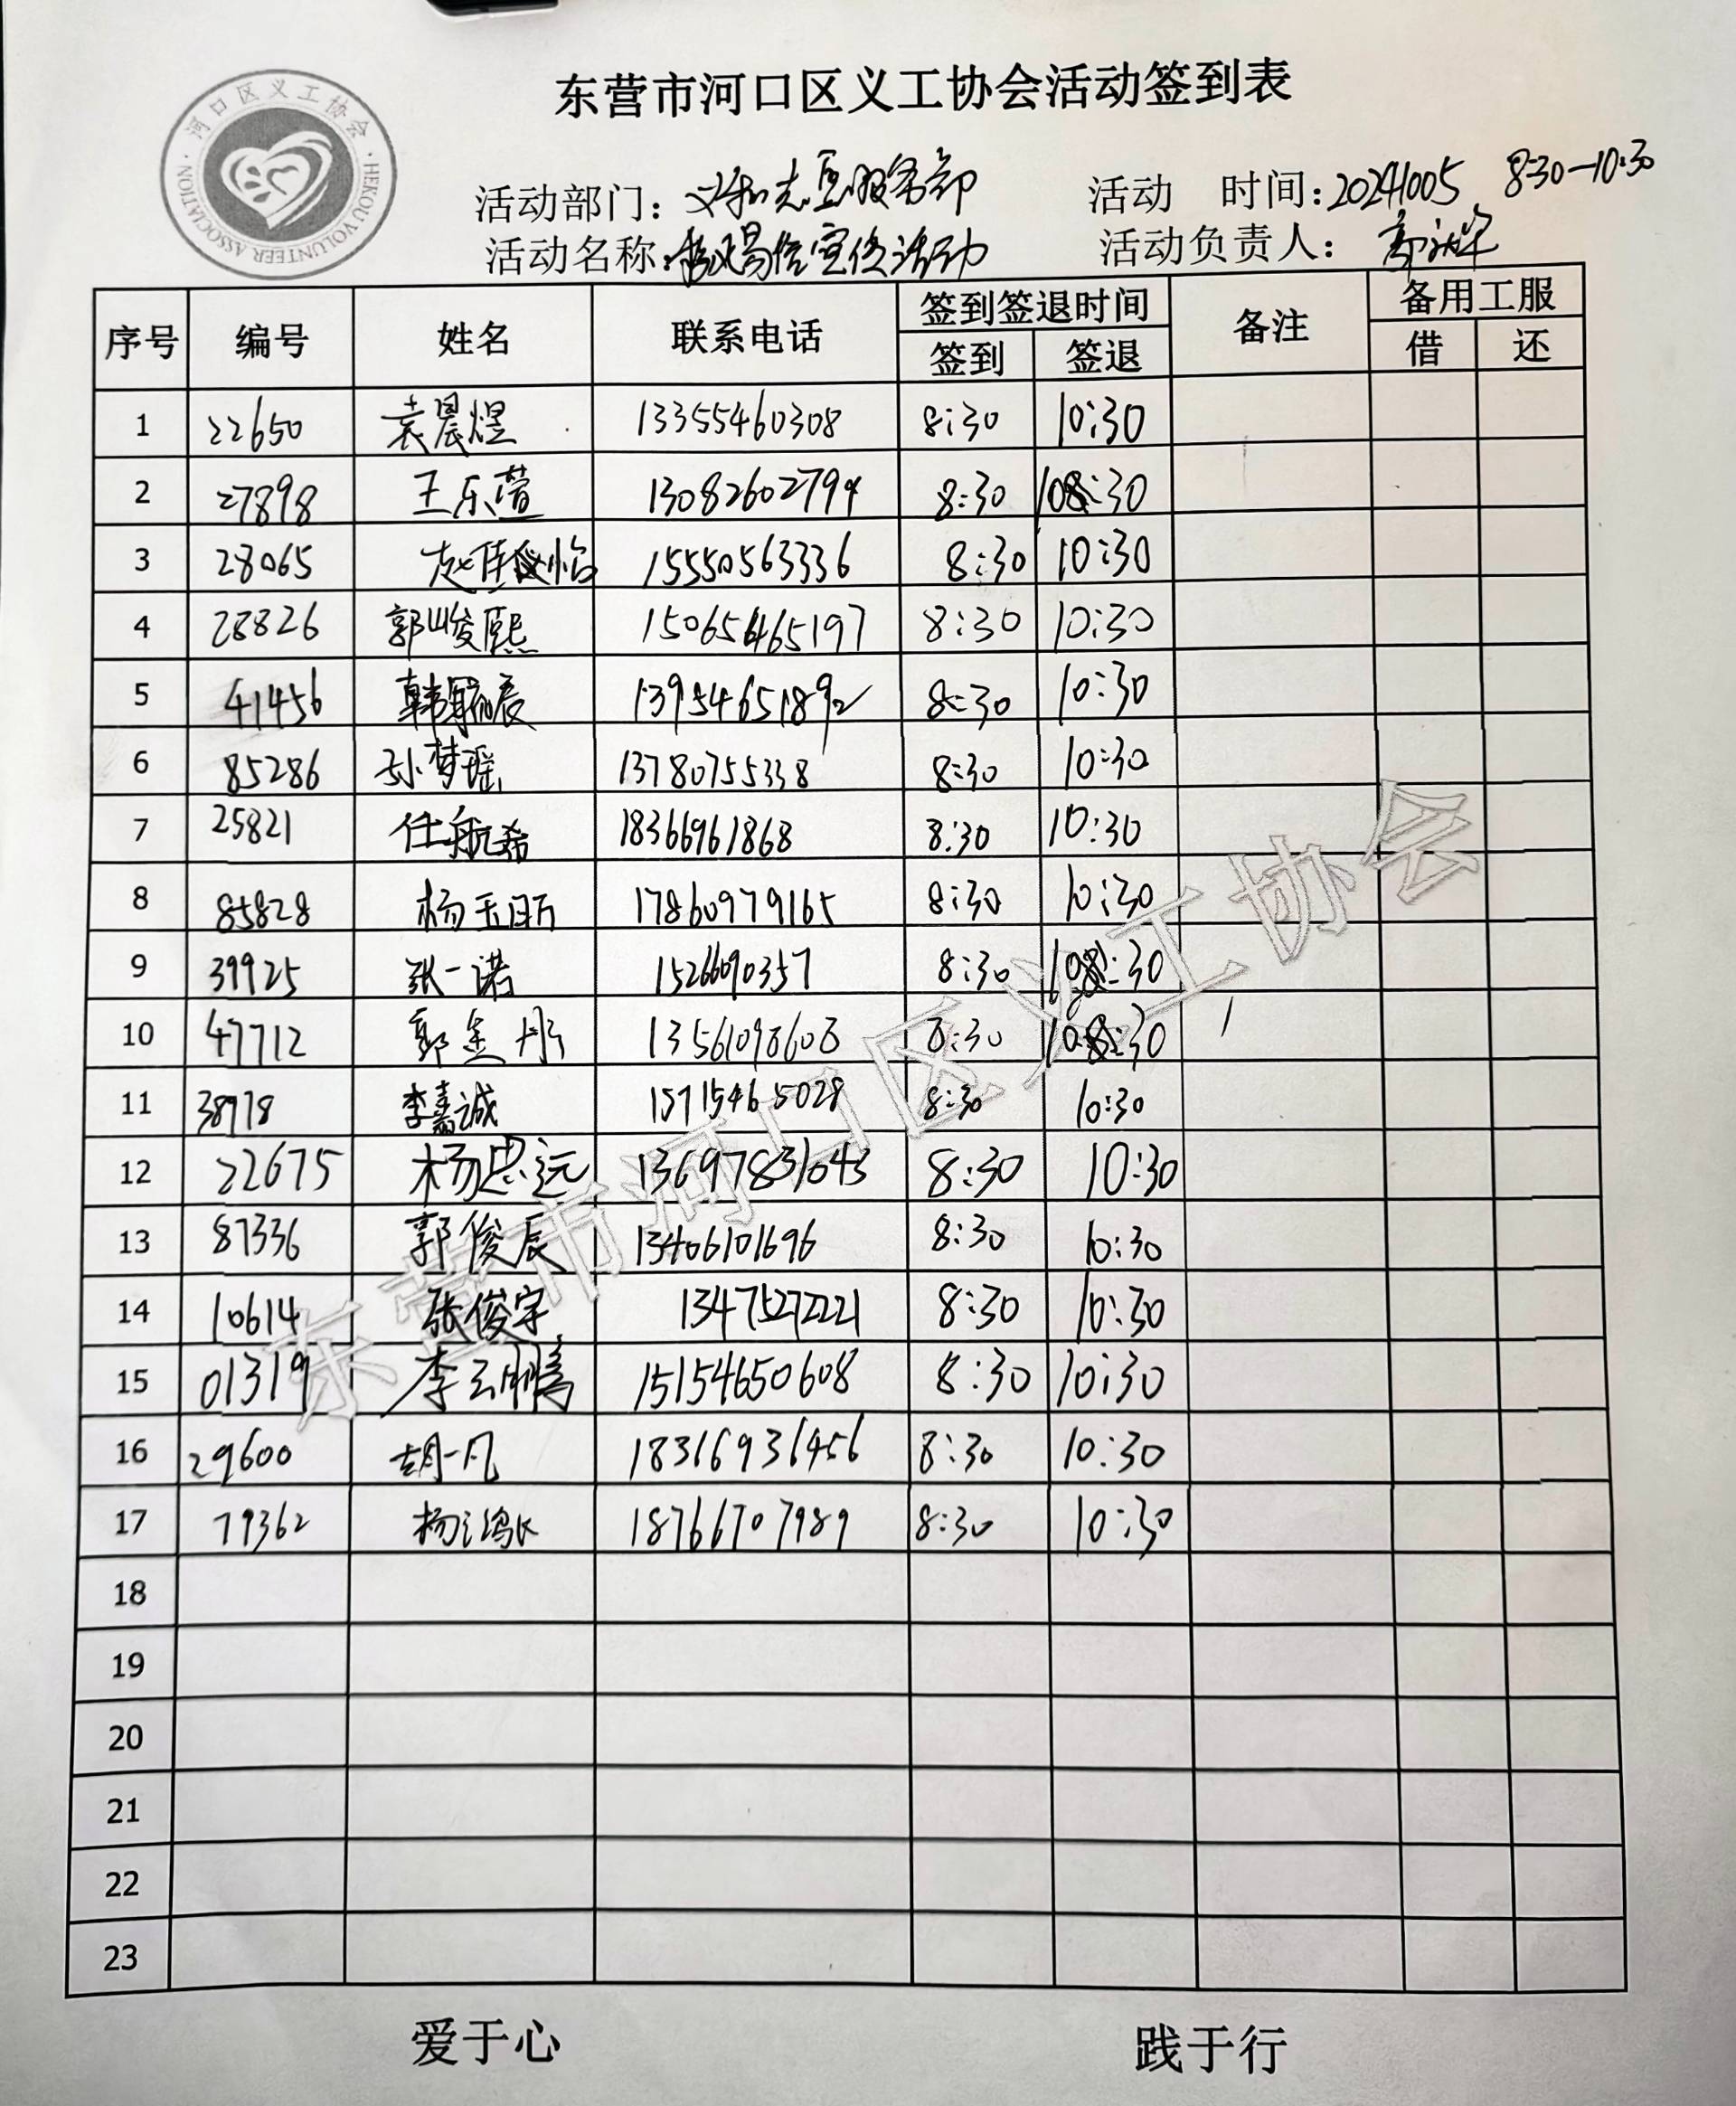 东营市河口区义工协会活动签到表
河口区义工协会
HEKOU VOLUNTEER ASSOCIATION
活动部门: 义和志愿服务部 活动 时间: 20241005 8:30-10:30
活动名称: 宣传活动 活动负责人:
序号 编号 姓名 联系电话 签到签退时间 备注 备用工服
签到 签退 借 还
1 22650 袁晨煜 13355460308 8:30 10:30
2 27898 王乐萱 13082602794 8:30 10:30
3 28065 赵佳怡 15550563336 8:30 10:30
4 28826 郭峻熙 15065465197 8:30 10:30
5 41456 韩毓辰 13954651892 8:30 10:30
6 85286 孙梦瑶 13780755338 8:30 10:30
7 25821 任航希 18366961868 8:30 10:30
8 85828 杨玉昕 17860979165 8:30 10:30
9 39925 张一诺 1526690357 8:30 10:30
10 47712 郭 彤 13561098608 8:30 10:30
11 38978 李嘉诚 15715465028 8:30 10:30
12 22675 杨思远 13697831043 8:30 10:30
13 87336 郭俊辰 13406101696 8:30 10:30
14 10614 张俊宇 13475272221 8:30 10:30
15 01319 李云鹏 15154650608 8:30 10:30
16 29600 胡一凡 18316936456 8:30 10:30
17 79362 杨 18766707989 8:30 10:30
18
19
20
21
22
23
东营市河口区义工协会
爱于心 践于行